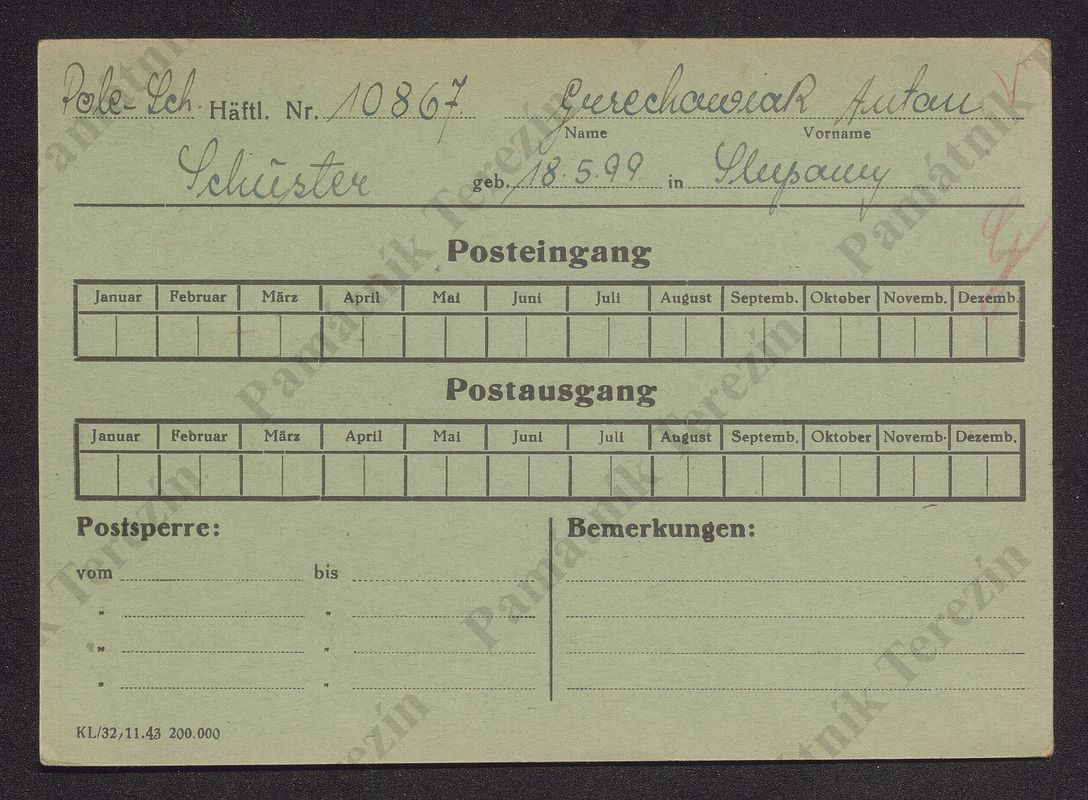 Pole-Sch. Häftl. Nr. 10867. Gurechowiak Antan
Name Vorname
Schuster geb. 18.5.99 in Slupamy
Posteingang
Januar Februar März April Mai Juni Juli August Septemb. Oktober Novemb. Dezemb.
Postausgang
Januar Februar März April Mai Juni Juli August Septemb. Oktober Novemb. Dezemb.
Postsperre: Bemerkungen:
vom bis
" "
" "
" "
KL/32, 11.43 200.000
Památník Terezín